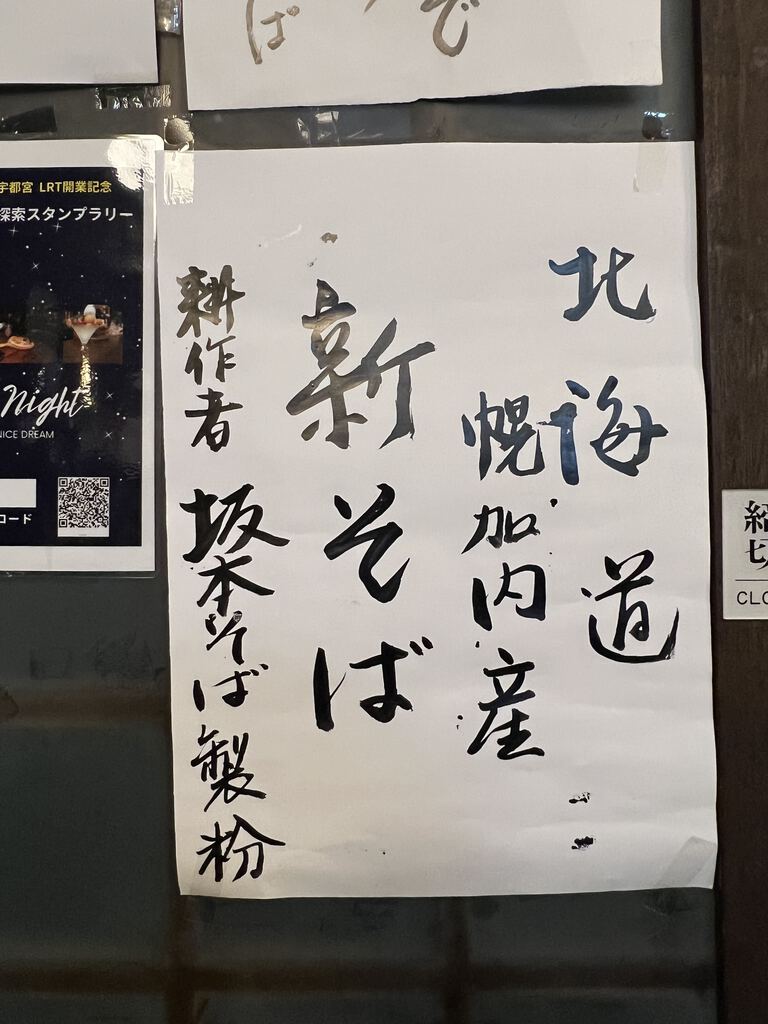 北海道
幌加内産
新そば
耕作者 坂本そば製粉
ば で
宇都宮 LRT開業記念
探索スタンプラリー
Night
NICE DREAM
コード
CLO